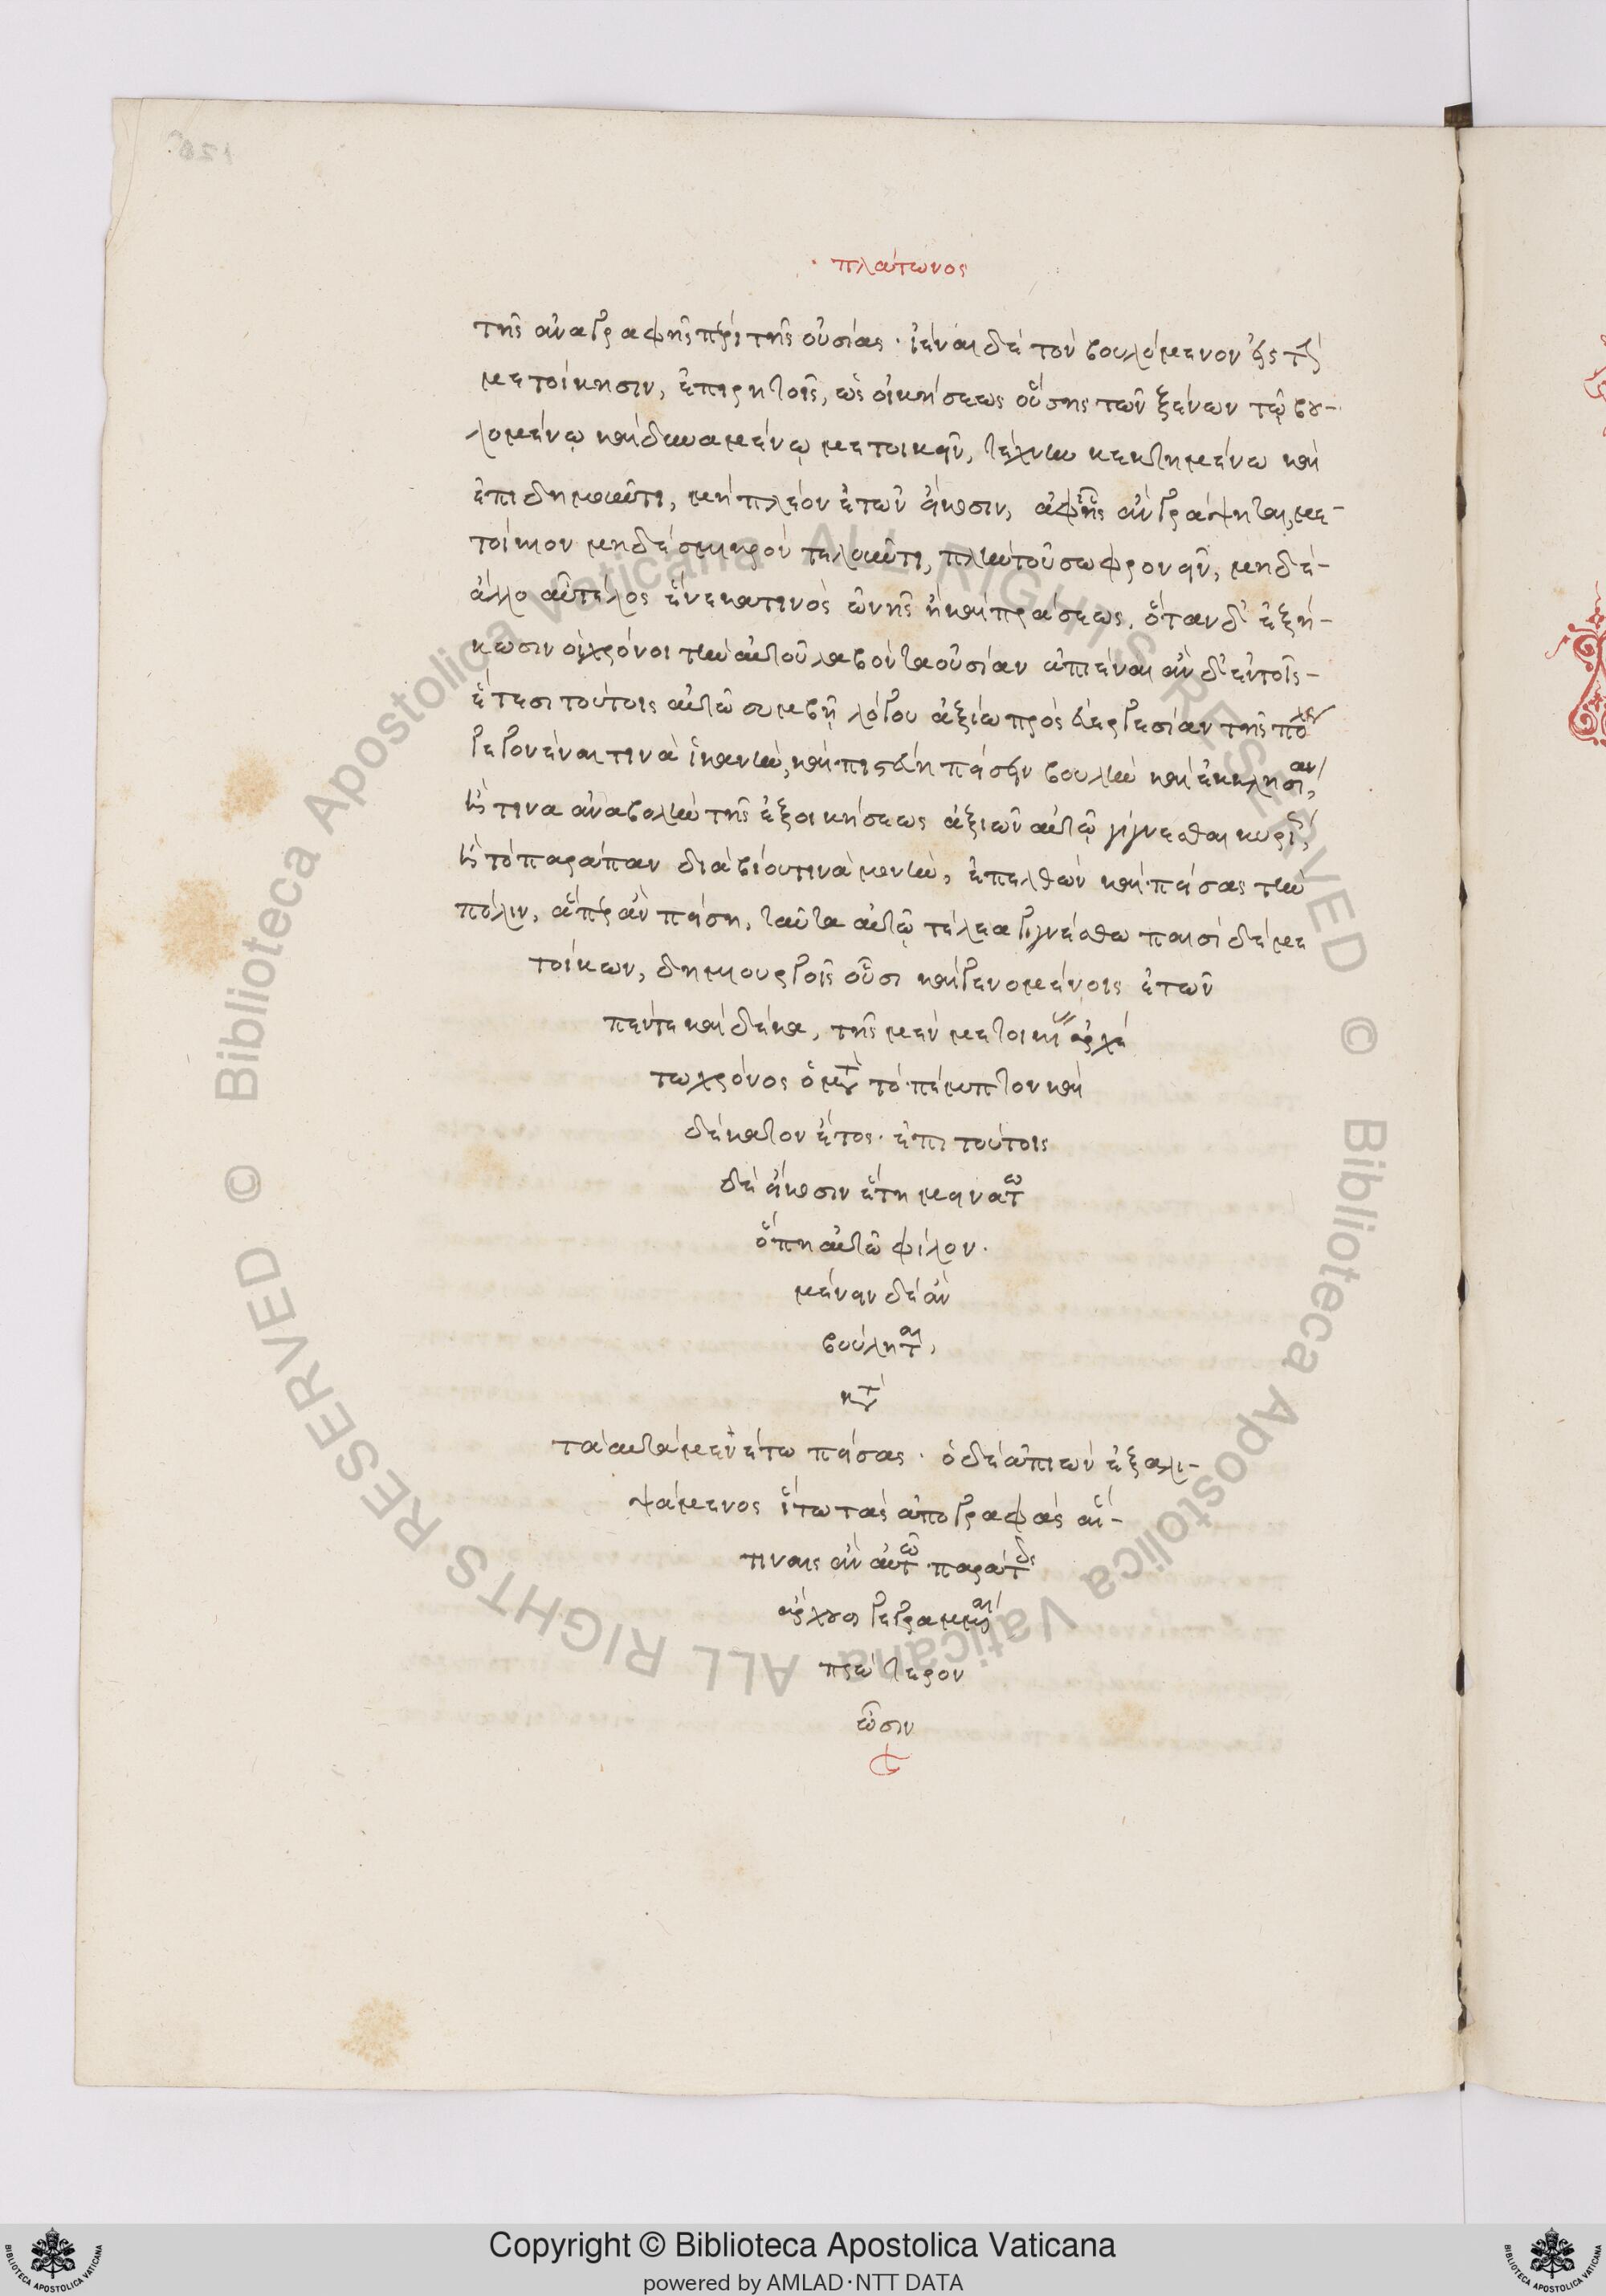 πλάτωνος
τῆς ἀναγραφῆς περὶ τῆς οὐσίας. ἰέναι δὲ τὸν βουλόμενον εἰς τὴν
μετοίκησιν, ἐπὶ ῥητοῖς, ὡς οἰκήσεως οὔσης τῶν ξένων τῷ βου-
λομένῳ καὶ δυναμένῳ μετοικεῖν, τέχνην κεκτημένω καὶ
ἐπιδημοῦντι, μὴ πλέον ἐτῶν εἴκοσιν, ἀφῆς ἂν γράψηται, με-
τοίκιον μηδὲ σμικρὸν τελοῦντι, πλὴν τοῦ σωφρονεῖν, μηδὲ-
ἄλλο αὖ τέλος ἕνεκα τινὸς ὠνῆς ἢ καὶ πράσεως. ὅταν δ' ἐξή-
κωσιν οἱ χρόνοι τὴν αὐτοῦ λαβόντα οὐσίαν ἀπιέναι ἂν δ' ἐν τοῖς-
ἔτεσι τούτοις αὐτῶ συμβῇ λόγου ἀξίω πρὸς εὐεργεσίαν τῆς πόλεως
γεγονέναι τινὰ ἱκανὴν, καὶ πιστεύη πείσειν βουλὴν καὶ ἐκκλησίαν,
ἤ τινα ἀναβολὴν τῆς ἐξοικήσεως ἀξιῶν αὐτῷ γίγνεσθαι κυρίως,
ἢ τὸ παράπαν διὰ βίου τινὰ μονὴν, ἐπελθὼν καὶ πείσας τὴν
πόλιν, ἅπερ ἂν πείση, ταῦτα αὐτῷ τέλεα γιγνέσθω παισὶ δὲ με
τοίκων, δημιουργοῖς οὖσι καὶ γενομένοις ἐτῶν
πέντε καὶ δέκα, τῆς μὲν μετοικίας ἀρχέ
τω χρόνος ὁ μετὰ τὸ πέμπτον καὶ
δέκατον ἔτος. ἐπὶ τούτοις
δὲ εἴκοσιν ἔτη μεινάτω
ὅπη αὐτῶ φίλον.
μένειν δὲ ἂν
βούληται,
κατὰ
τὰ αὐτὰ μενέτω πείσας. ὁ δὲ ἀπιὼν ἐξαλι-
ψάμενος ἴτω τὰς ἀπογραφὰς αἵ-
τινες ἂν αὐτῶ παρὰ τοῖς
ἄρχουσι γεγραμμέναι
πρότερον
ὦσιν
Copyright © Biblioteca Apostolica Vaticana
powered by AMLAD·NTT DATA